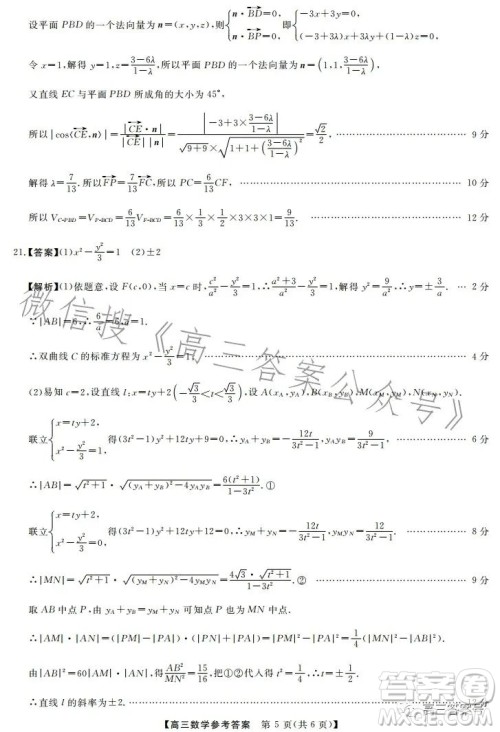 设平面 PBD 的一个法向量为 n=(x,y,z),则{n·BD=0, n·BP=0, 即{-3x+3y=0, (-3-3λ)x+3λy+(1-λ)z=0,
令 x=1,解得 y=1,z=(3-6λ)/(1-λ),所以平面 PBD 的一个法向量为 n=(1,1,(3-6λ)/(1-λ)),
又直线 EC 与平面 PBD 所成角的大小为 45°,
所以|cos⟨CE,n⟩|=|CE·n|/(|CE||n|)=|-3+3×(3-6λ)/(1-λ)|/(√(9+9)×√(1+1+((3-6λ)/(1-λ))²))=√2/2, 9 分
解得 λ=7/13.所以FP=7/13 FC,所以 PC=6/13 CF, 10 分
所以 V_{C-PBD}=V_{P-BCD}=6/13 V_{F-BCD}=6/13×1/3×9/2×1=9/13. 12 分
21.【答案】(1)x²-y²/3=1 (2)±2
【解析】(1)依题意,设 F(c,0),当 x=c 时,c²/a²-y²/3=1,∴(a²+3)/a²-y²/3=1,解得 y=±3/a. 2 分
∴|AB|=6/a=6,a=1.
∴双曲线 C 的标准方程为 x²-y²/3=1. 4 分
(2)易知 c=2,设直线 l:x=ty+2(-√3/3<t<√3/3),设 A(x_A,y_A),B(x_B,y_B),M(x_M,y_M),N(x_N,y_N).
联立{x=ty+2, x²-y²/3=1, 得(3t²-1)y²+12ty+9=0,∴y_A+y_B=-12t/(3t²-1),y_A y_B=9/(3t²-1). 6 分
∴|AB|=√(t²+1)·√((y_A+y_B)²-4y_A y_B)=6(t²+1)/(1-3t²).①
联立{x=ty+2, x²-y²/3=0, 得(3t²-1)y²+12ty+12=0,∴y_M+y_N=-12t/(3t²-1),y_M y_N=12/(3t²-1). 8 分
∴|MN|=√(t²+1)·√((y_M+y_N)²-4y_M y_N)=4√3·√(t²+1)/(1-3t²).② 9 分
取 AB 中点 P,由 y_A+y_B=y_M+y_N 可知点 P 也为 MN 中点.
∴|AM|·|AN|=(|PM|-|PA|)·(|PN|+|PA|)=(|PM|²-|PA|²)=1/4(|MN|²-|AB|²).
由|AB|²=60|AM|·|AN|,得AB²/MN²=15/16,把①②代入得 t²=1/4,t=±1/2.
∴直线 l 的斜率为±2.
【高三数学参考答案 第 5 页(共 6 页)】
微信搜《高三答案公众号》